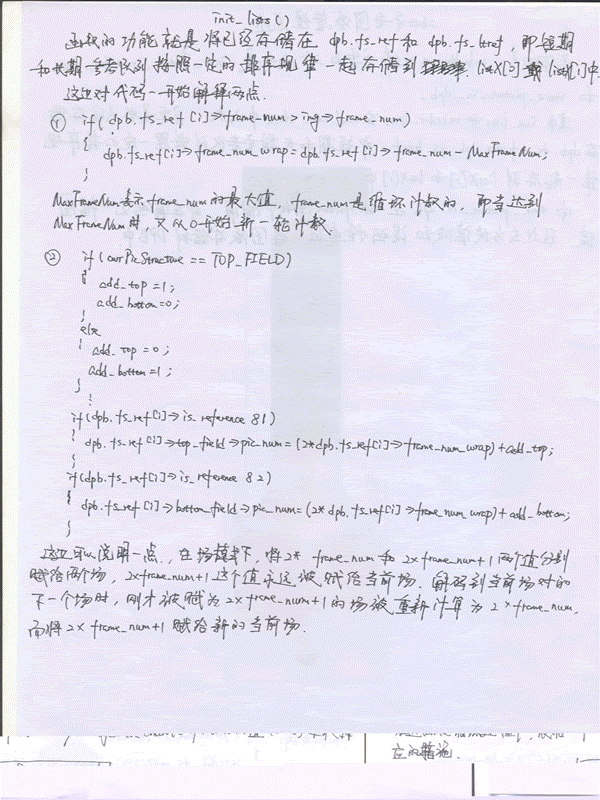 init_lists()
函数的功能就是将已经存储在 dpb.fs_ref 和 dpb.fs_ltref, 即短期
和长期参考队列按照一定的排序规律一起存储到 listX[0]或listX[1]中.
这里对代码一开始解释两点.
① if( dpb.fs_ref[i]→frame_num > img→frame_num)
{
dpb.fs_ref[i]→frame_num_wrap = dpb.fs_ref[i]→frame_num - MaxFrameNum;
}
MaxFrameNum表示frame_num的最大值, frame_num是循环计数的, 即当达到
MaxFrameNum时, 又从0开始新一轮计数.
② if(currPicStructure == TOP_FIELD)
{
add_top = 1;
add_bottom = 0;
}
else
{
add_top = 0;
add_bottom = 1;
}
⋮
if(dpb.fs_ref[i]→is_reference & 1)
{
dpb.fs_ref[i]→top_field→pic_num = (2*dpb.fs_ref[i]→frame_num_wrap) + add_top;
}
if(dpb.fs_ref[i]→is_reference & 2)
{
dpb.fs_ref[i]→bottom_field→pic_num = (2*dpb.fs_ref[i]→frame_num_wrap) + add_bottom;
}
这里可以说明一点, 在场模式下, 将2*frame_num和2×frame_num+1两个值分别
赋给两个场, 2×frame_num+1这个值永远被赋给当前场. 解码到当前场对的
下一个场时, 刚才被赋为2×frame_num+1的场被重新计算为2×frame_num,
而将2×frame_num+1赋给新的当前场.
应的措施.